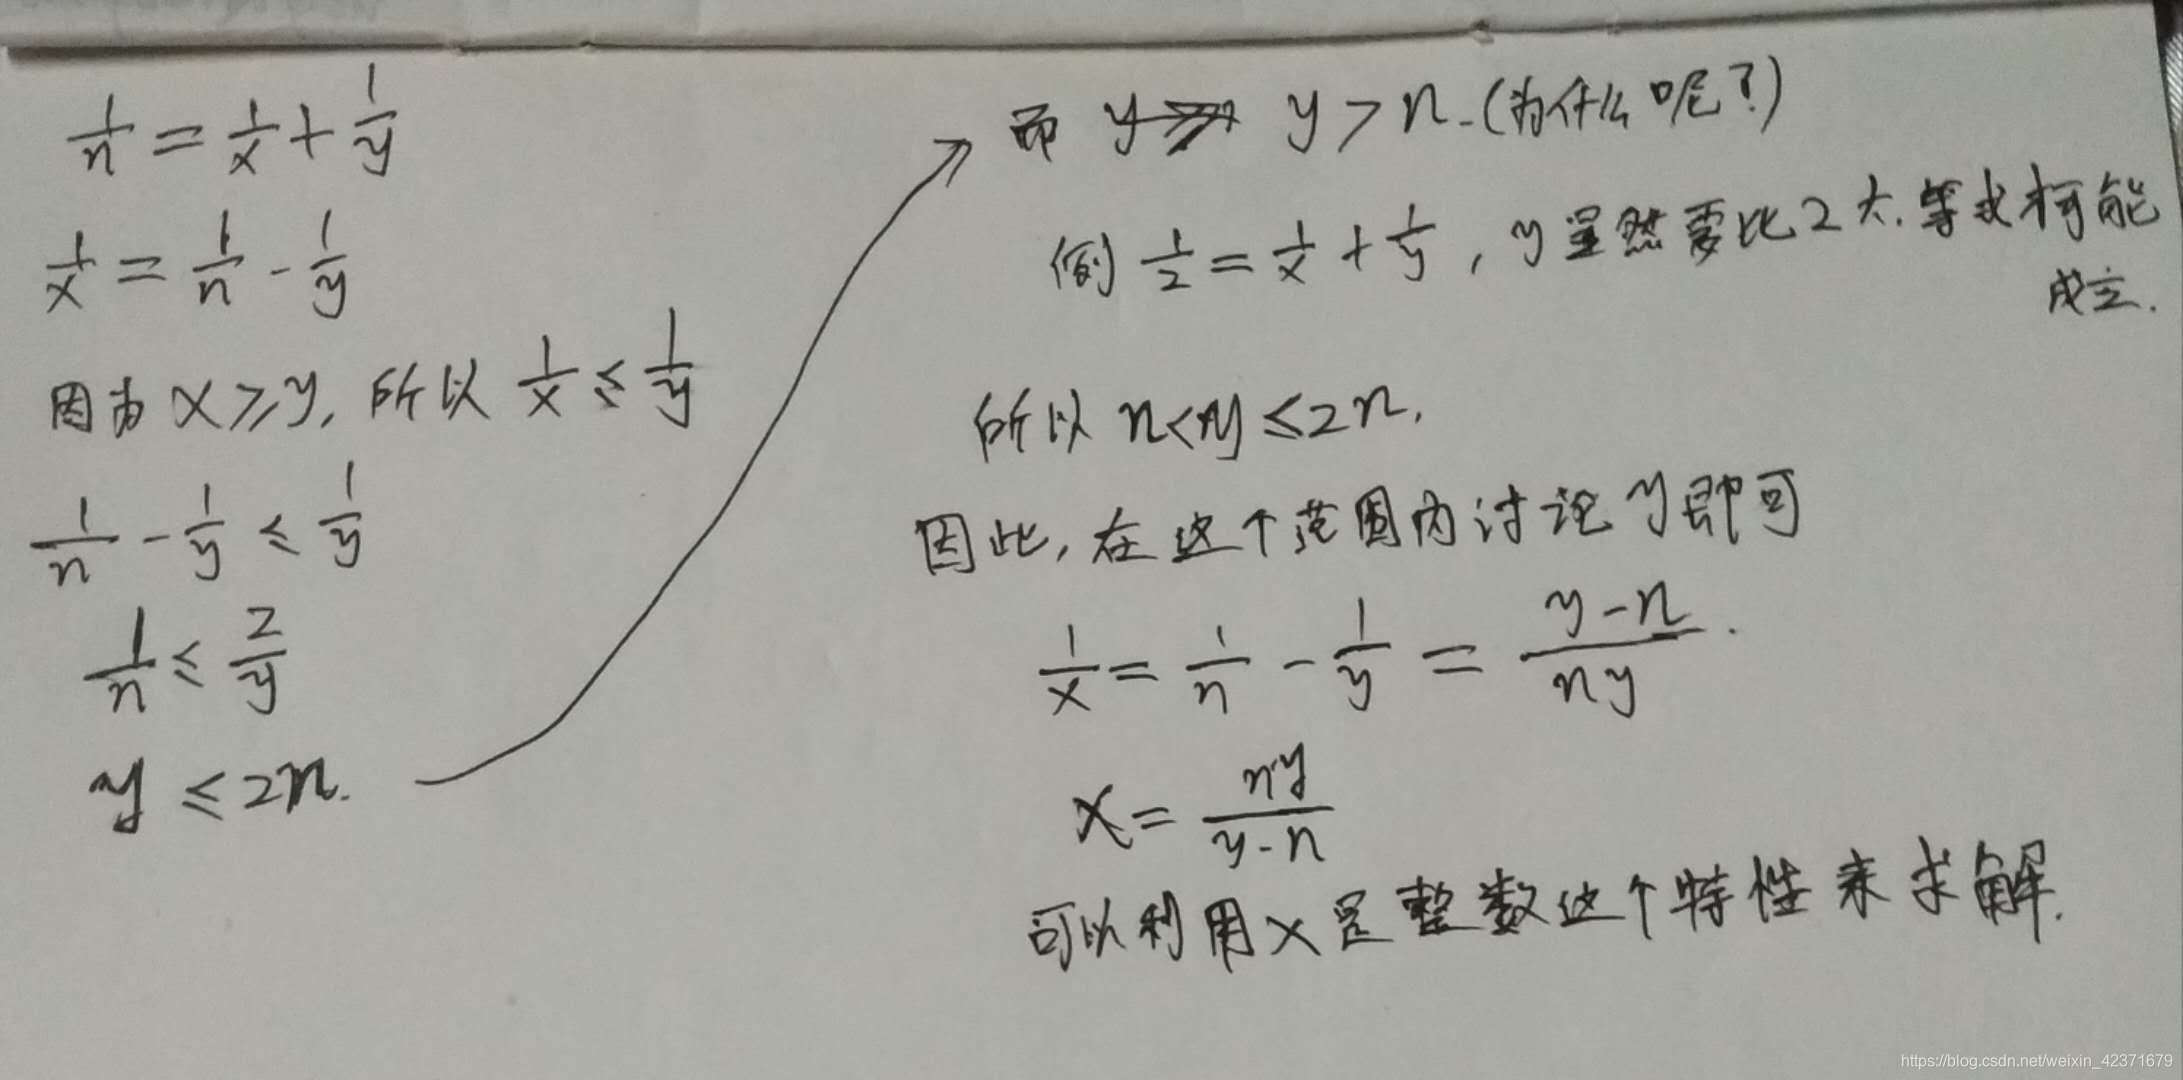 1/n = 1/x + 1/y
1/x = 1/n - 1/y
因为 x ≥ y, 所以 1/x ≤ 1/y
1/n - 1/y ≤ 1/y
1/n ≤ 2/y
y ≤ 2n.
而 y > n. (为什么呢?)
例 1/2 = 1/x + 1/y , y 显然要比 2 大. 等式才可能
成立.
所以 n < y ≤ 2n.
因此, 在这个范围内讨论 y 即可
1/x = 1/n - 1/y = (y-n)/(ny) .
x = ny/(y-n)
可以利用 x 是整数这个特性来求解.
https://blog.csdn.net/weixin_42371679